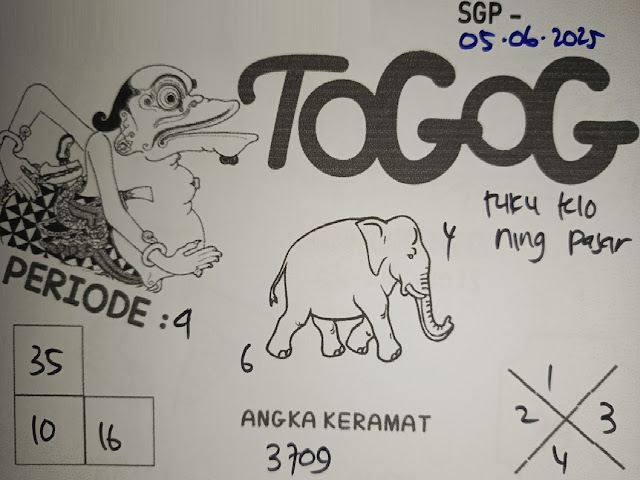 SGP -
05.06.2025
TOGOG
tuku telo
ning pasar
4
PERIODE : 9
6
35
10 16
ANGKA KERAMAT
3709
1
2 3
4